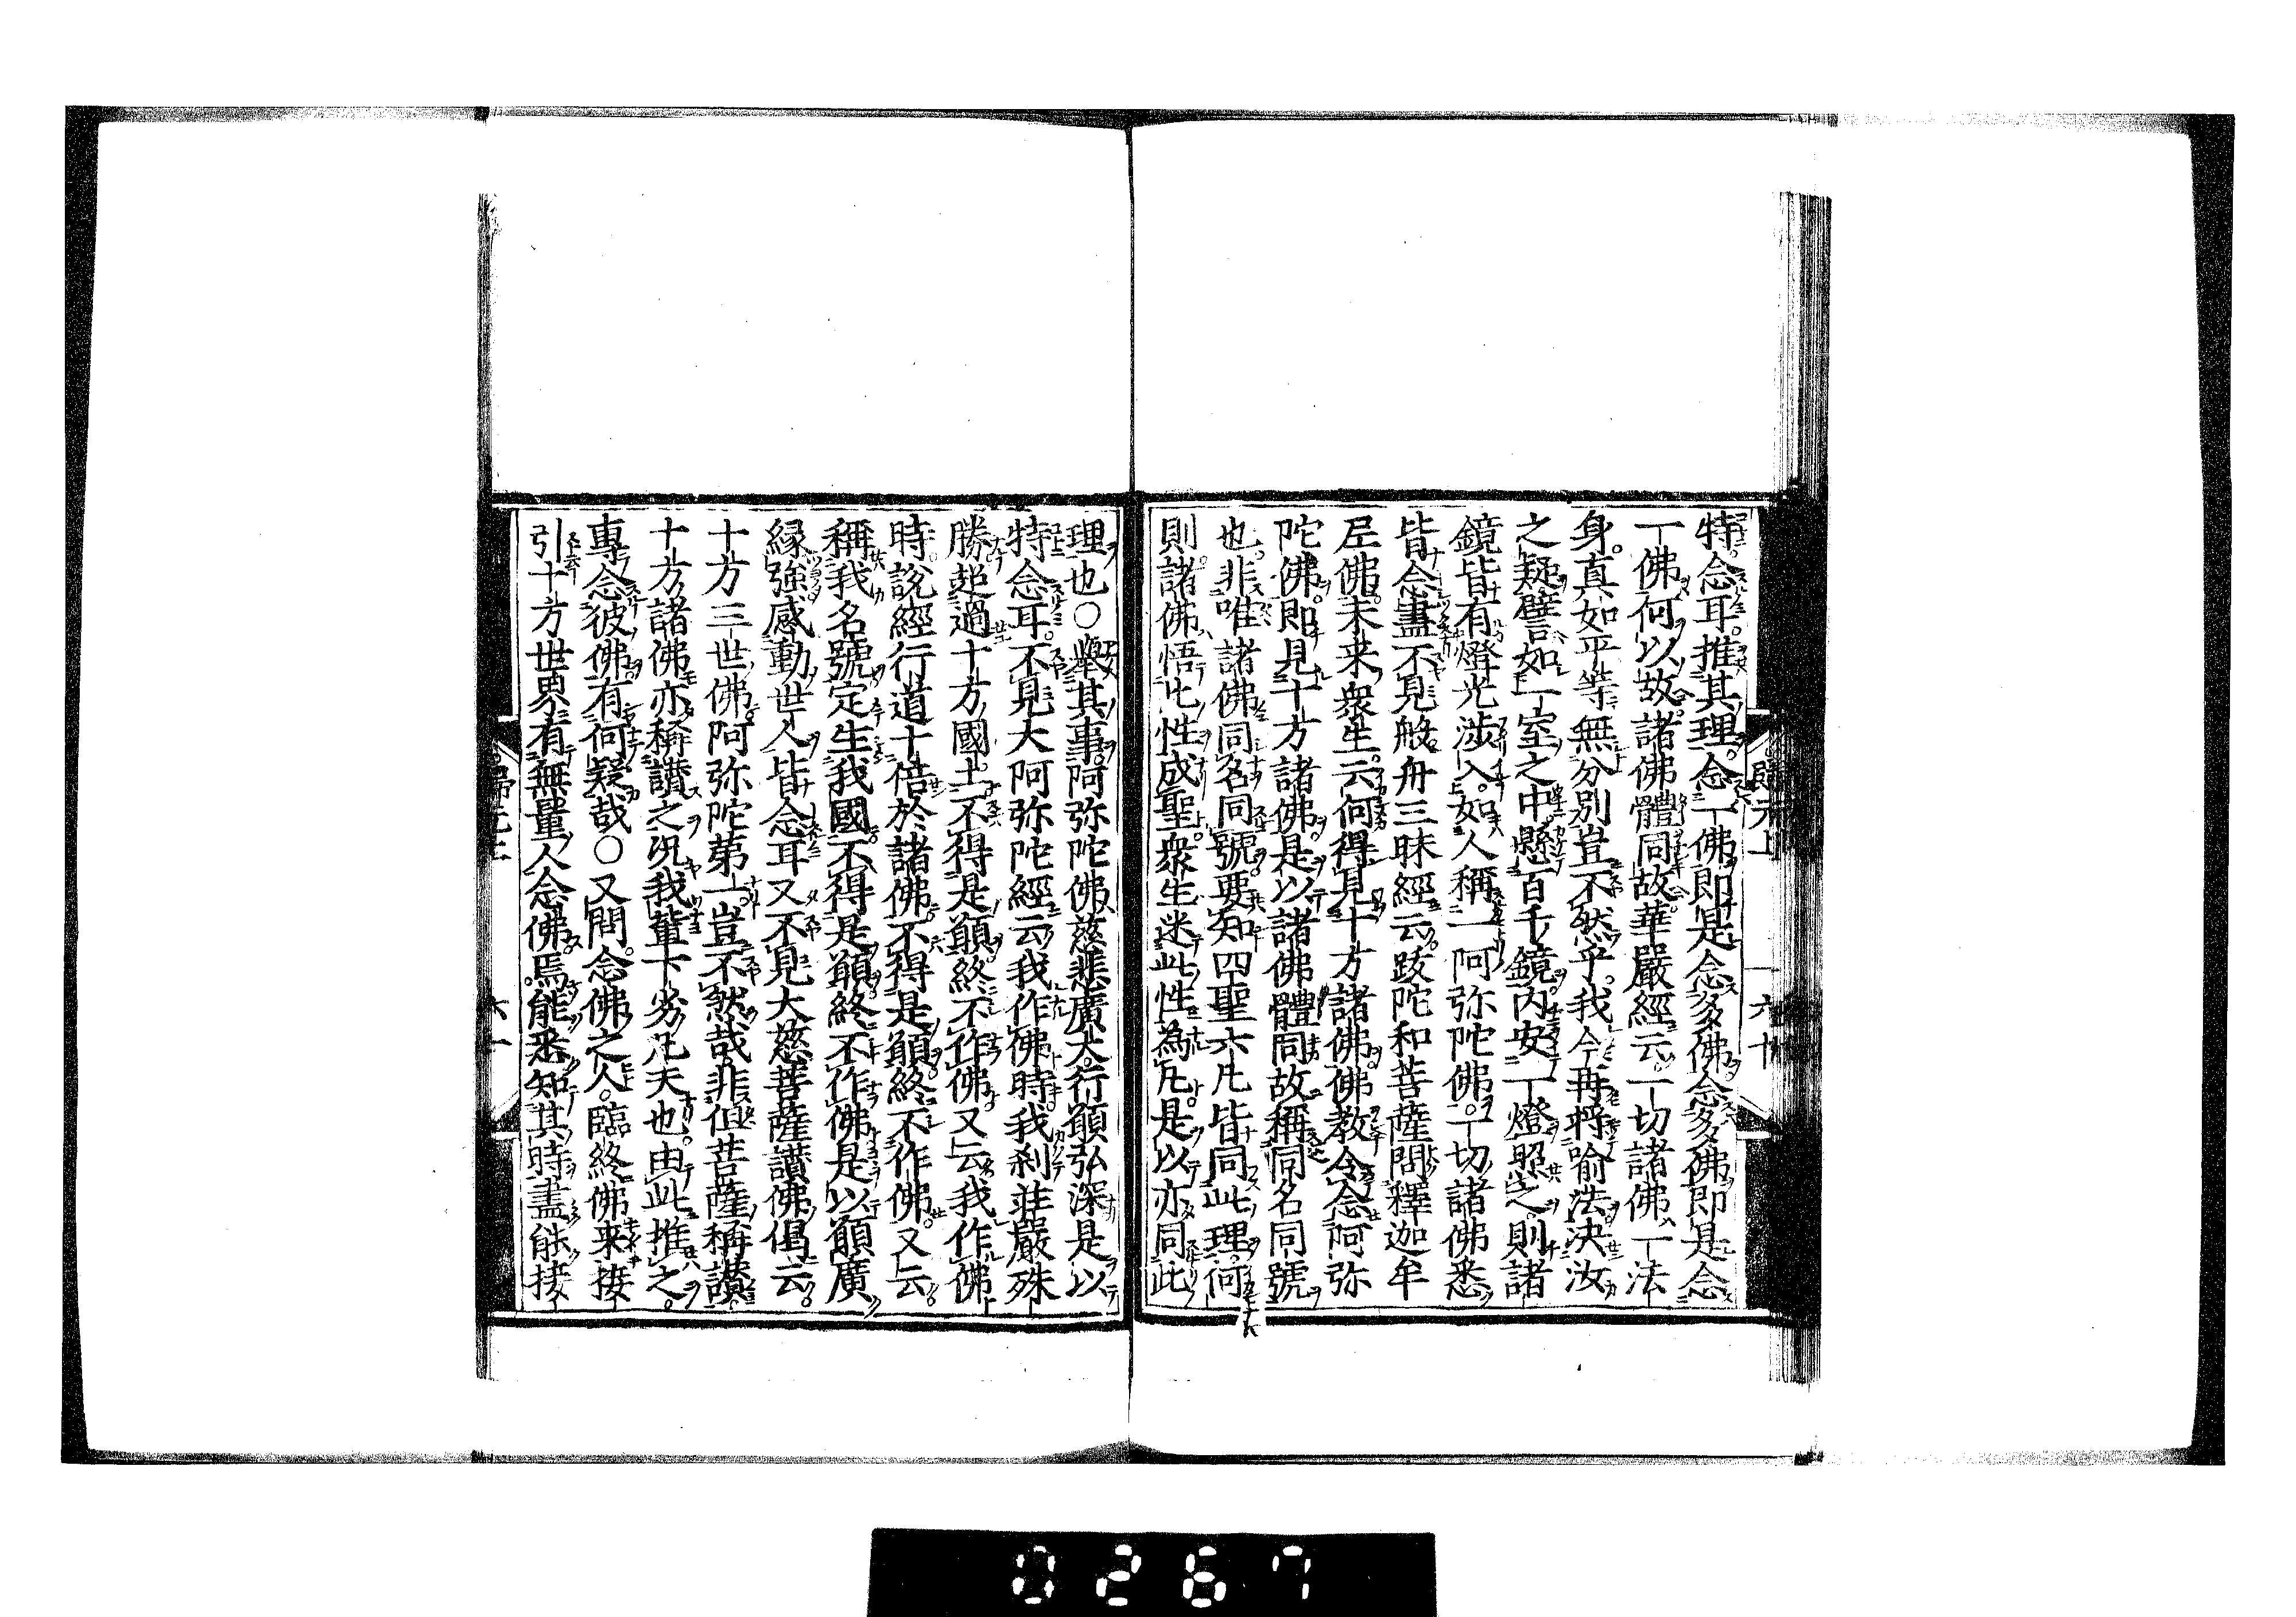 特念耳。推其理。念一佛即是念多佛念多佛即是念
一佛何以故諸佛體同故華嚴經云一切諸佛一法
身。真如平等無分別豈不然乎。我今再將喻法決汝
之疑譬如一室之中。懸百千鏡。鏡內安一燈照之則諸
鏡皆有燈光涉入。如人稱一阿弥陀佛。一切諸佛悉
皆念盡不見般舟三昧經云。跋陀和菩薩問釋迦牟
尼佛。未来衆生。云何得見十方諸佛。佛教令念阿弥
陀佛。即見十方諸佛。是以諸佛體同故稱同名同號
也。非唯諸佛同名同號。要知四聖六凡皆同此理。何
則諸佛悟此性成聖。衆生迷此性為凡。是以亦同此
理也○舉其事。阿弥陀佛慈悲廣大。行願弘深是以
特念耳。不見大阿弥陀經云我作佛時我刹莊嚴殊
勝超過十方國土不得是願終不作佛又云我作佛
時。說經行道十倍於諸佛。不得是願。終不作佛。又云。
稱我名號定生我國不得是願終不作佛是以願廣
縁強感動世人皆念耳又不見大慈菩薩讃佛偈云
十方三世佛阿弥陀第一。豈不然哉。非但菩薩稱讃。
十方諸佛亦稱讃之况我輩下劣凡夫也。由此推之。
專念彼佛。有何疑哉○又問。念佛之人。臨終佛来接
引十方世界有無量人念佛。焉能悉知其時盡能接
歸元上
六十
六十一
0267